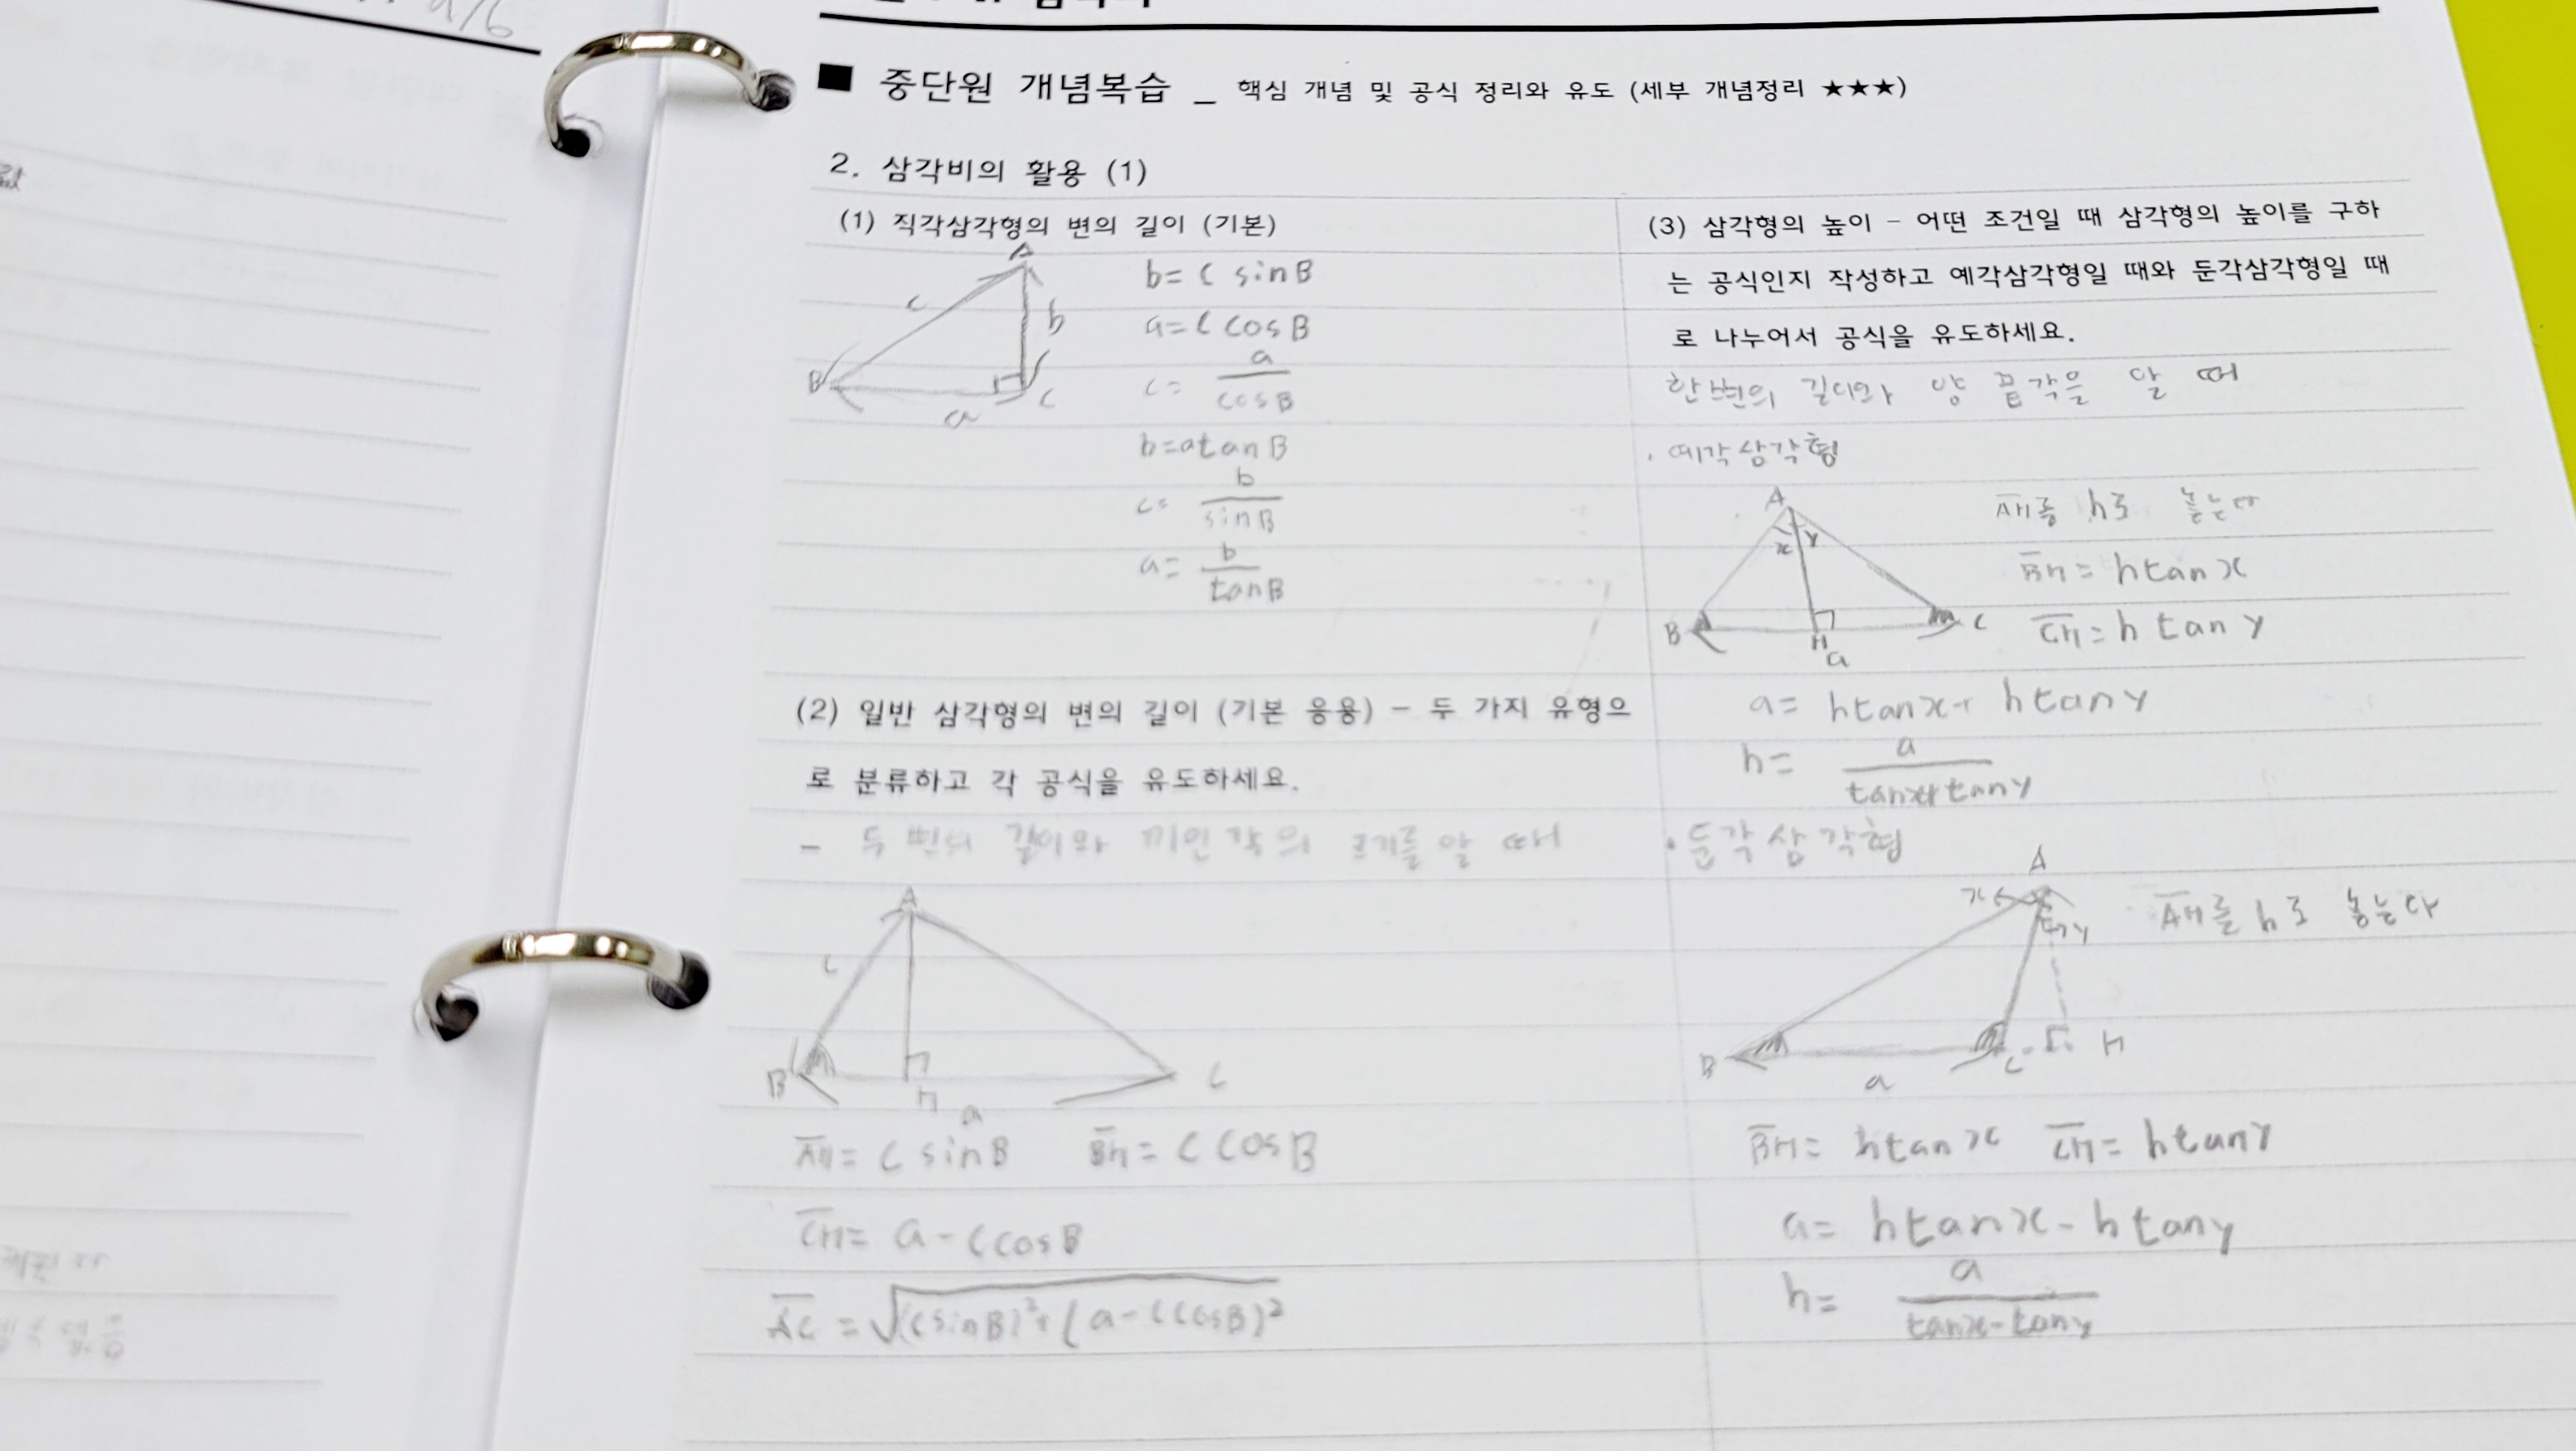 ■ 중단원 개념복습 _ 핵심 개념 및 공식 정리와 유도 (세부 개념정리 ★★★)
2. 삼각비의 활용 (1)
(1) 직각삼각형의 변의 길이 (기본)
A
c
b
B
a
C
b = c sinB
a = c cosB
c = a / cosB
b = a tanB
c = b / sinB
a = b / tanB
(2) 일반 삼각형의 변의 길이 (기본 응용) – 두 가지 유형으
로 분류하고 각 공식을 유도하세요.
- 두 변의 길이와 끼인 각의 크기를 알 때
A
c
B
H
a
C
A̅H̅ = c sinB B̅H̅ = c cosB
C̅H̅ = a - c cosB
A̅C̅ = √((c sinB)² + (a - c cosB)²
(3) 삼각형의 높이 – 어떤 조건일 때 삼각형의 높이를 구하
는 공식인지 작성하고 예각삼각형일 때와 둔각삼각형일 때
로 나누어서 공식을 유도하세요.
한 변의 길이와 양 끝각을 알 때
· 예각삼각형
A
x y
B
H
a
C
A̅H̅를 h로 놓는다
B̅H̅ = h tan x
C̅H̅ = h tan y
a = h tan x + h tan y
h = a / tan x + tan y
· 둔각삼각형
A
x
y
B
a
C
H
A̅H̅를 h로 놓는다
B̅H̅ = h tan x C̅H̅ = h tan y
a = h tan x - h tan y
h = a / tan x - tan y